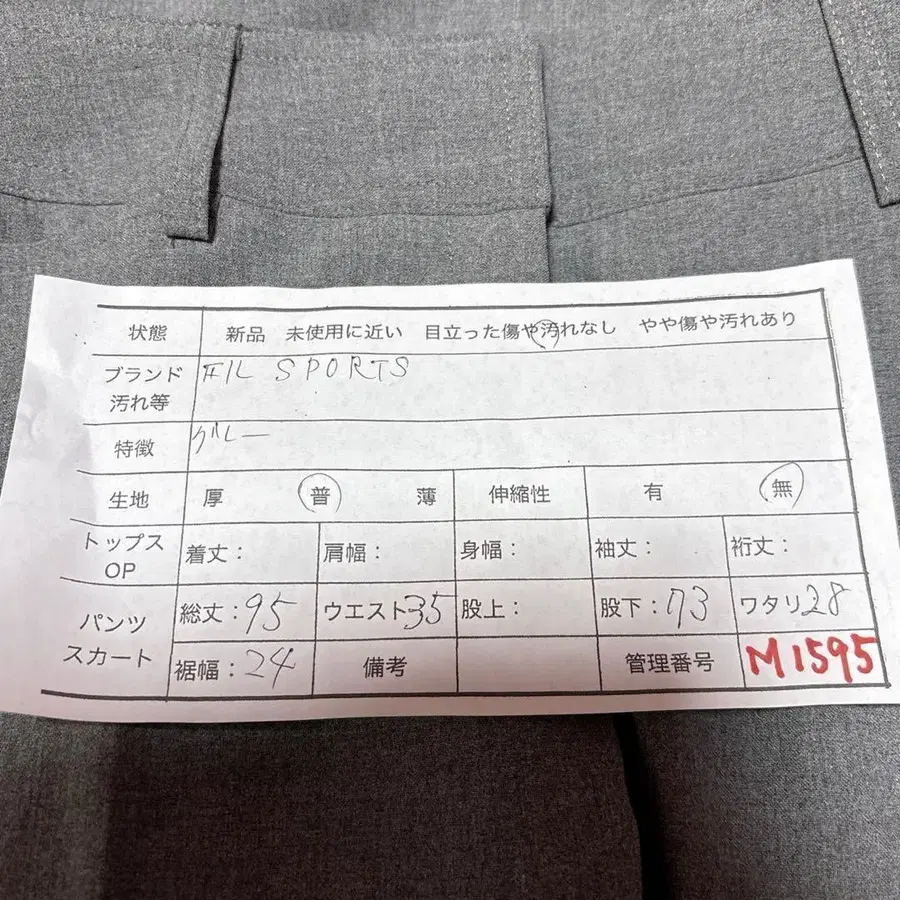 状態 新品 未使用に近い 目立った傷や汚れなし やや傷や汚れあり
ブランド 汚れ等 SPORTS
特徴 グレー
生地 厚 普 薄 伸縮性 有 無
トップス OP 着丈: 肩幅: 身幅: 袖丈: 裄丈:
パンツ スカート 総丈:95 ウエスト35 股上: 股下:73 ワタリ28
裾幅:24 備考 管理番号 M1595